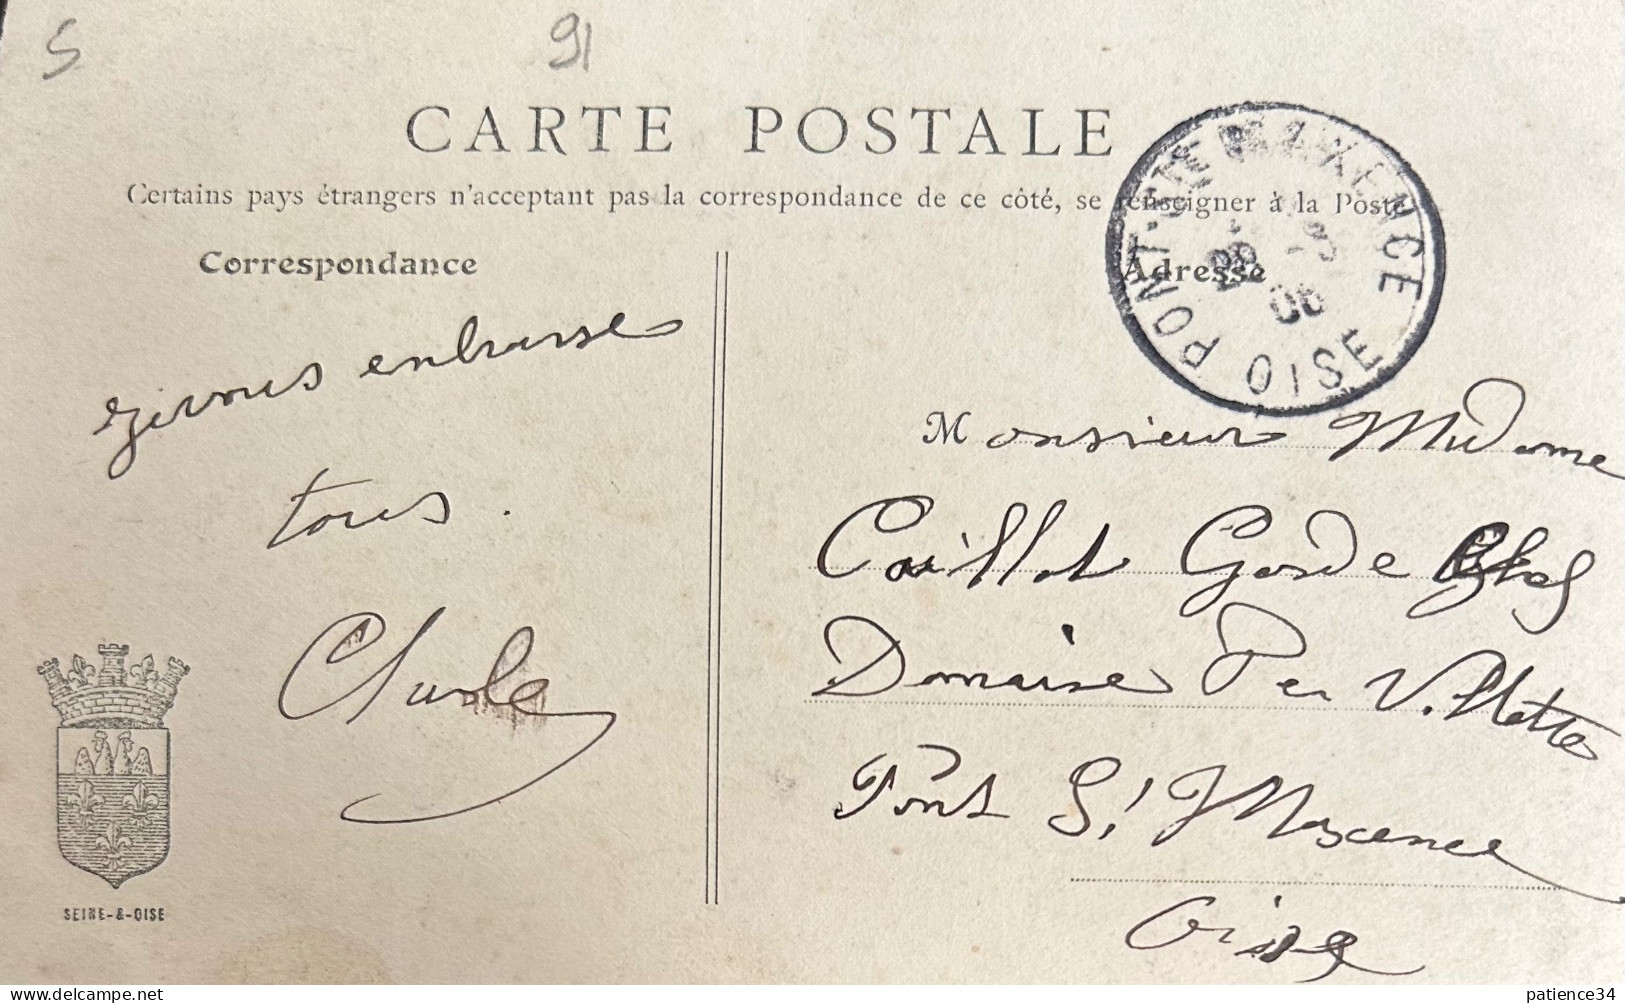 S
91
CARTE POSTALE
Certains pays étrangers n'acceptant pas la correspondance de ce côté, se renseigner à la Poste
Correspondance
Adresse
PONT-STE MAXENCE
OISE
Je vous embrasse
tous.
Charle
Monsieur Madame
Caillot Garde
Domaine de Villette
Pont St Maxence
Oise
SEINE-&-OISE
delcampe.net
patience34